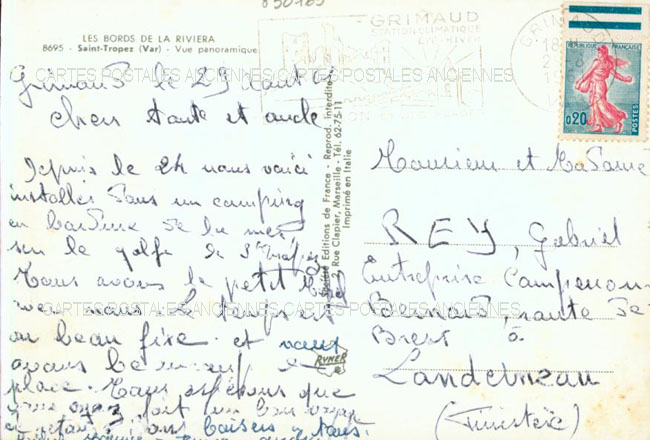 LES BORDS DE LA RIVIERA
8695 - Saint-Tropez (Var) - Vue panoramique
Grimaud le 25 aout
chers tante et oncle
Depuis le 24 nous voici
installés dans un camping
en bordure de la mer
sur le golfe de St Tropez
Nous avons le petit
avec nous. Le temps est
au beau fixe. et nous
avons
place. Nous espérons que
vous avez fait un bon voyage
baisers
GRIMAUD
STATION CLIMATIQUE
GRIMAUD
REPUBLIQUE FRANÇAISE
0,20
POSTES
Editions de France - Reprod. Interdite
2, Rue Clapier, Marseille - Tél. 62-75-11
Imprimé en Italie
RYNER
Monsieur et Madame
REY, Gabriel
Entreprise Campenon
Bernard, route de
Brest à
Landerneau
(Finistère)
CARTES POSTALES ANCIENNES CARTES POSTALES ANCIENNES
CARTES POSTALES ANCIENNES CARTES POSTALES ANCIENNES